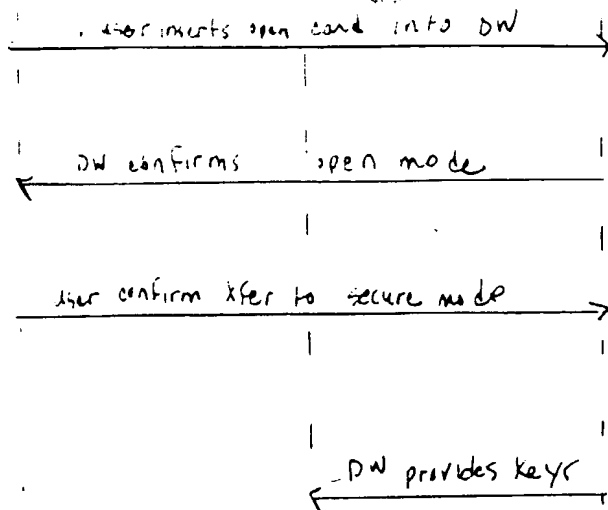 user inserts open card into DW
DW confirms open mode
user confirm Xfer to secure mode
DW provides keys